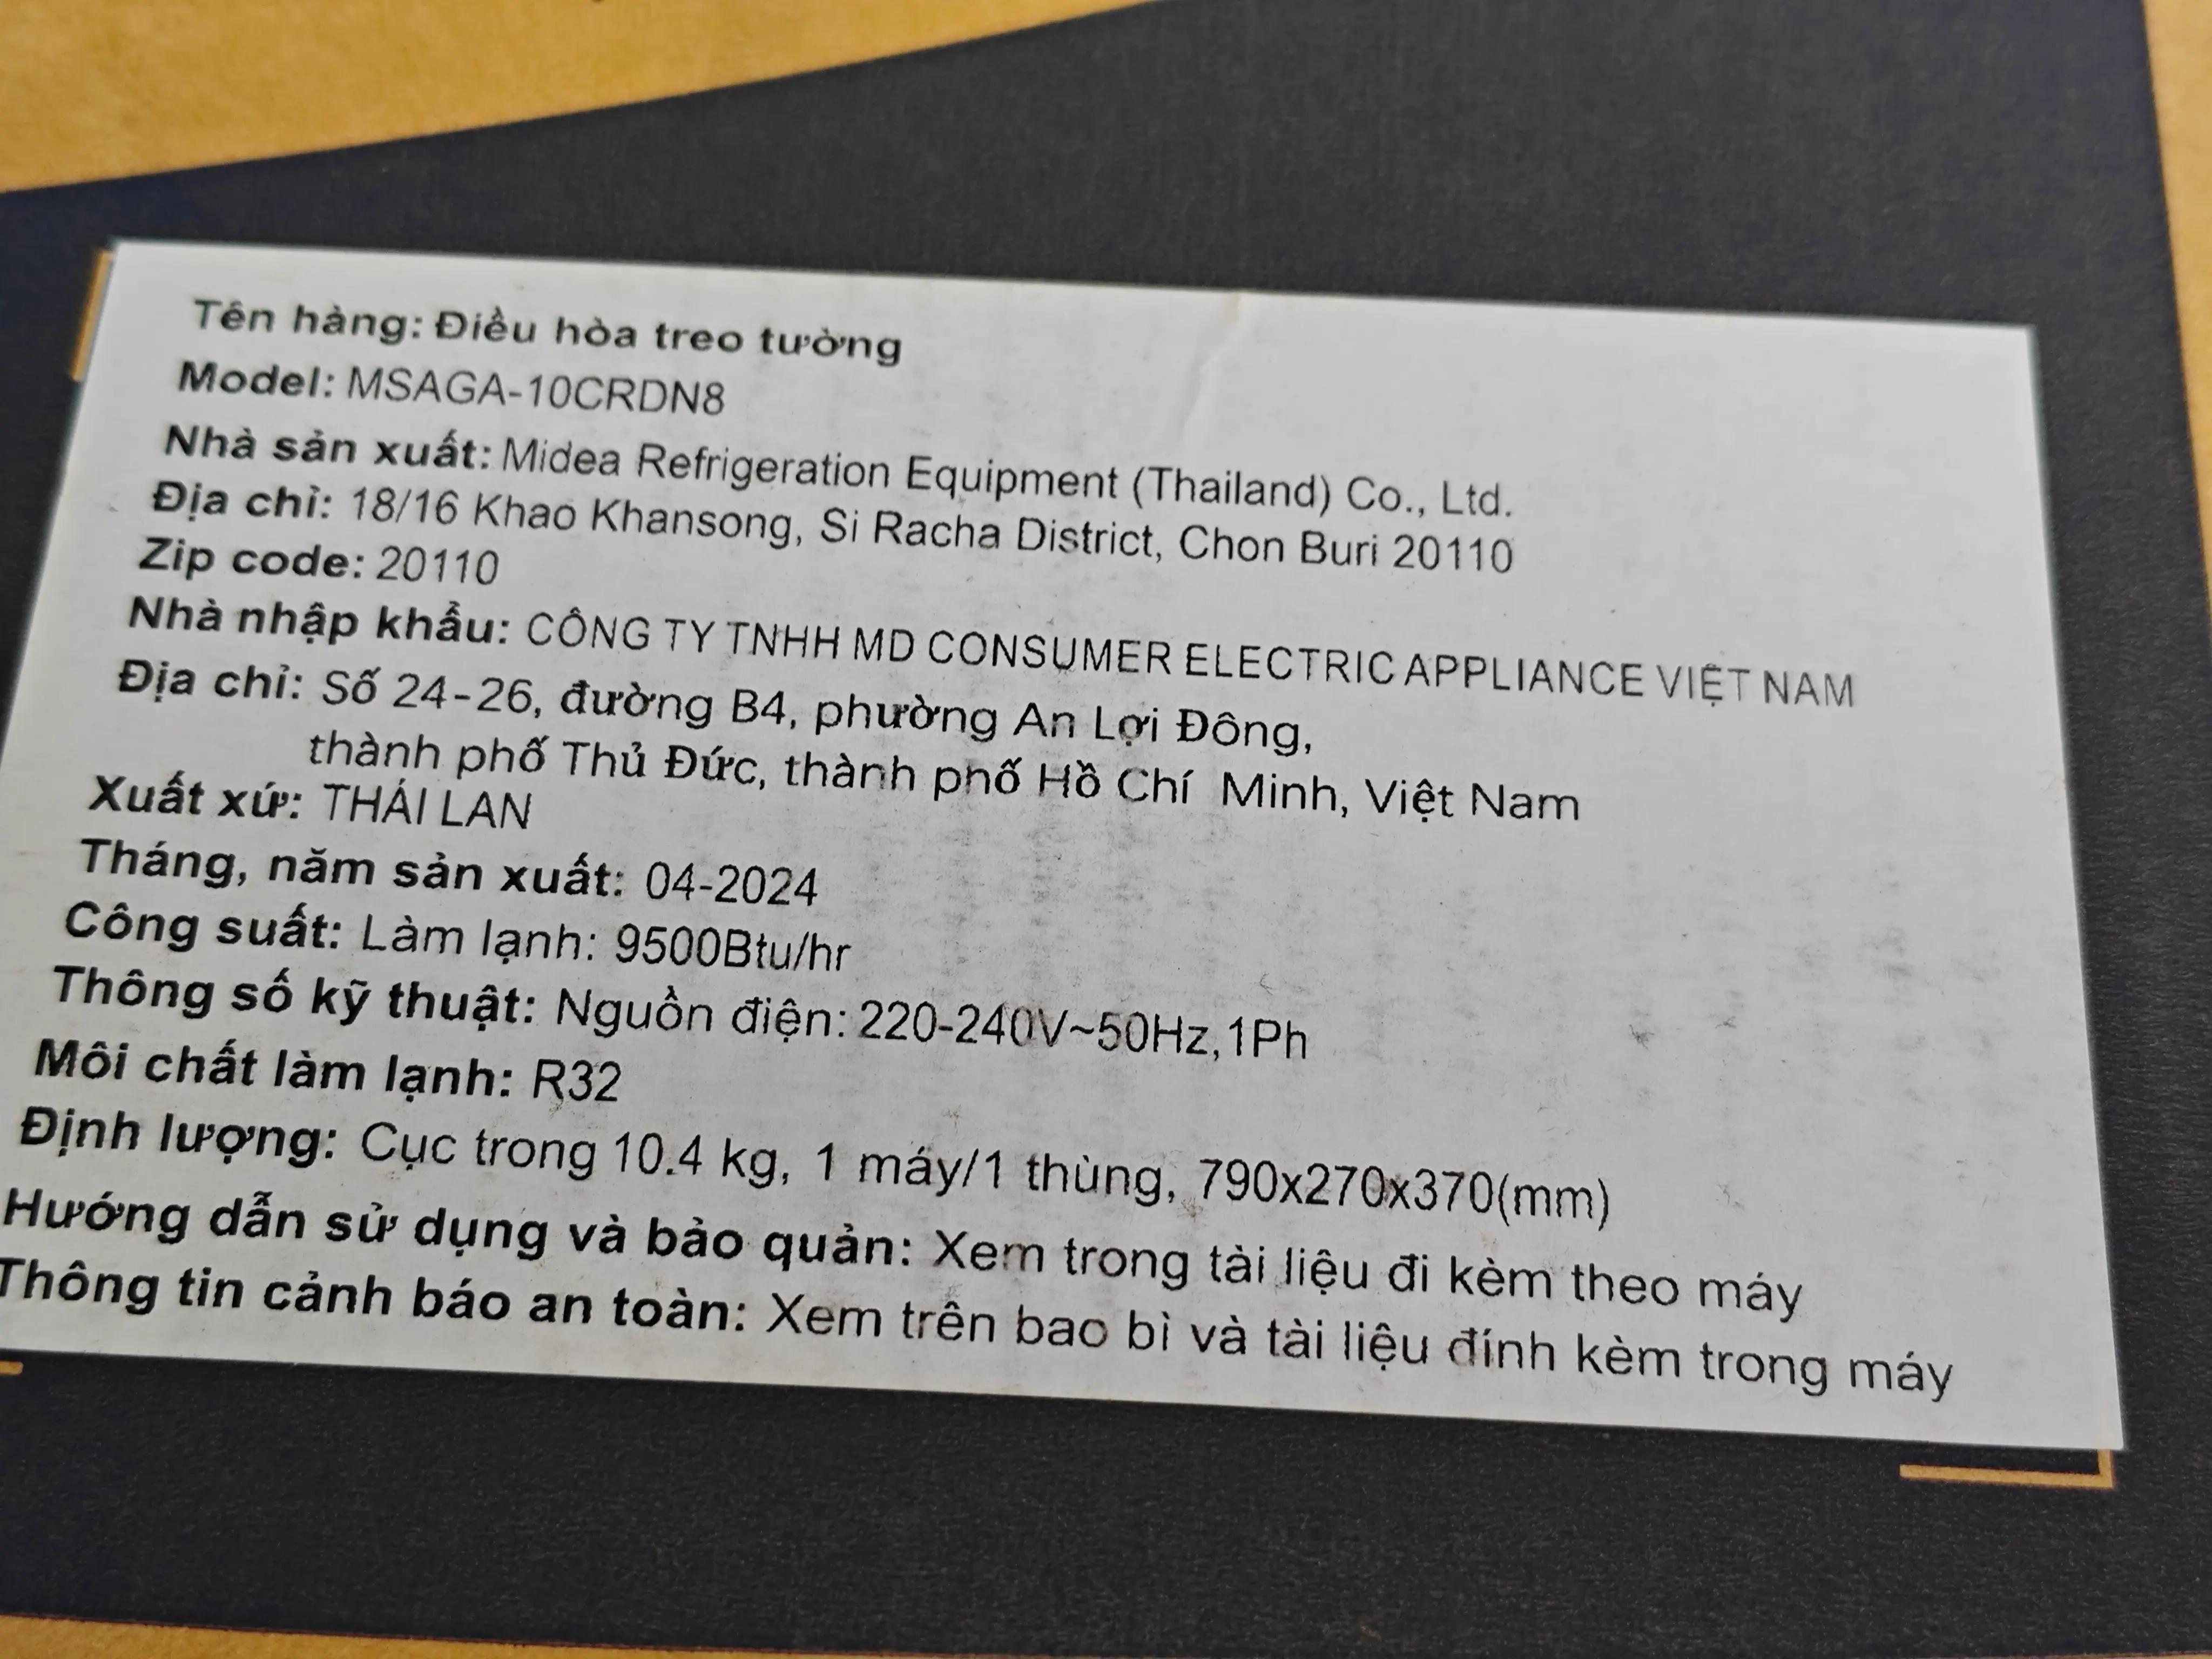 Tên hàng: Điều hòa treo tường
Model: MSAGA-10CRDN8
Nhà sản xuất: Midea Refrigeration Equipment (Thailand) Co., Ltd.
Địa chỉ: 18/16 Khao Khansong, Si Racha District, Chon Buri 20110
Zip code: 20110
Nhà nhập khẩu: CÔNG TY TNHH MD CONSUMER ELECTRIC APPLIANCE VIỆT NAM
Địa chỉ: Số 24-26, đường B4, phường An Lợi Đông,
thành phố Thủ Đức, thành phố Hồ Chí Minh, Việt Nam
Xuất xứ: THÁI LAN
Tháng, năm sản xuất: 04-2024
Công suất: Làm lạnh: 9500Btu/hr
Thông số kỹ thuật: Nguồn điện: 220-240V~50Hz,1Ph
Môi chất làm lạnh: R32
Định lượng: Cục trong 10.4 kg, 1 máy/1 thùng, 790x270x370(mm)
Hướng dẫn sử dụng và bảo quản: Xem trong tài liệu đi kèm theo máy
Thông tin cảnh báo an toàn: Xem trên bao bì và tài liệu đính kèm trong máy